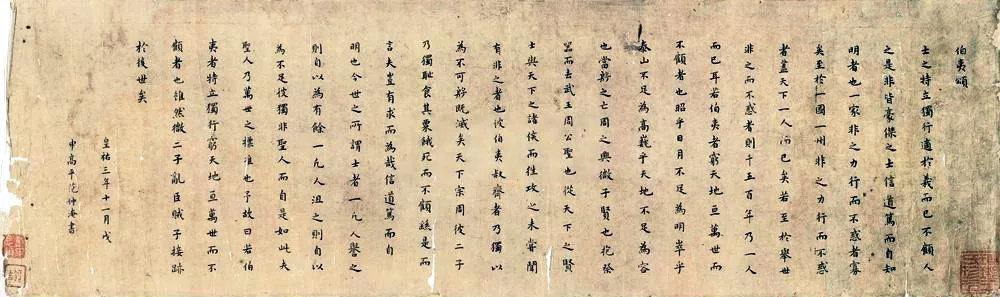 伯夷頌
士之特立獨行適於義而已不顧人
之是非皆豪傑之士信道篤而自知
明者也一家非之力行而不惑者寡
矣至於一國一州非之力行而不惑
者蓋天下一人而已矣若至於舉世
非之而不惑者則千五百年乃一人
而已耳若伯夷者窮天地亘萬世而
不顧者也昭乎日月不足為明崒乎
泰山不足為高巍乎天地不足為容
也當紂之亡周之興微子賢也抱祭
器而去武王周公聖也從天下之賢
士與天下之諸侯而往攻之未嘗聞
有非之者也彼伯夷叔齊者乃獨以
為不可紂既滅矣天下宗周彼二子
乃獨恥食其粟餓死而不顧繇是而
言夫豈有求而為哉信道篤而自
明也今世之所謂士者一凡人譽之
則自以為有餘一凡人沮之則自以
為不足彼獨非聖人而自是如此夫
聖人乃萬世之標準也予故曰若伯
夷者特立獨行窮天地亘萬世而不
顧者也雖然微二子亂臣賊子接跡
於後世矣
皇祐三年十一月戊
申高平范仲淹書